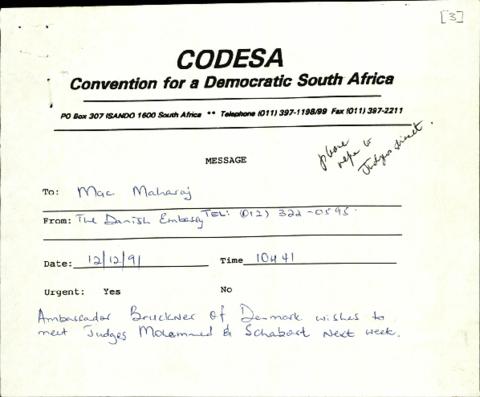 [3]
CODESA
Convention for a Democratic South Africa
PO Box 307 ISANDO 1600 South Africa ** Telephone (011) 397-1198/99 Fax (011) 397-2211
please
refer to
Judges direct.
MESSAGE
To: Mac Maharaj
From: The Danish Embassy TEL: (012) 322-0595.
Date: 12/12/91 Time 10H41
Urgent: Yes No
Ambassador Bruckner of Denmark wishes to
meet Judges Mohammed & Schabort next week.